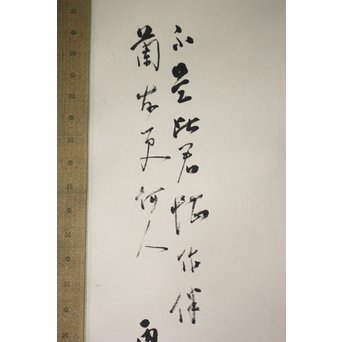 不是此君惟作伴
蘭交更何人